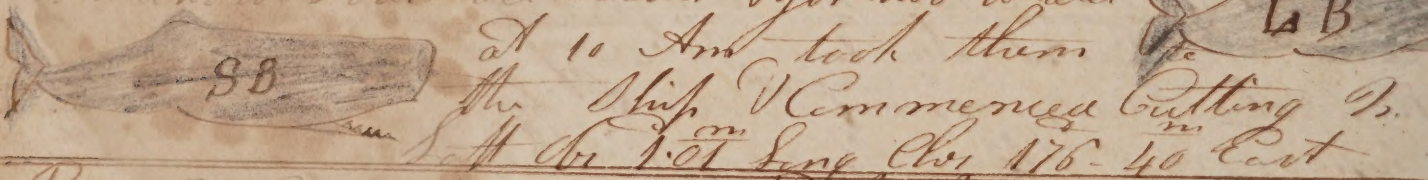 L B
S B
at 10 Am took them to
the Ship & Commenced Cutting In
Latt Obs 1°.01 m Long Chr 176-40 m East